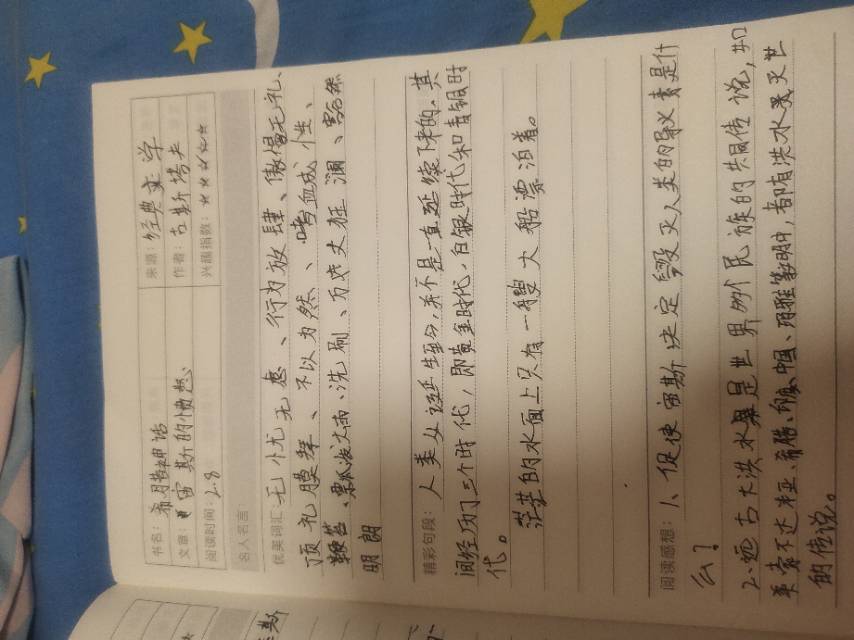 书名：希腊神话 来源：经典文学
文章：宙斯的愤怒 作者：古斯塔夫
阅读时间：2.8 兴趣指数：★★★★★
名人名言：
优美词汇：无忧无虑、行为放肆、傲慢无礼、
顶礼膜拜、不以为然、嗜血成性、
鞭笞、滂沱大雨、洗刷、万丈狂澜、豁然
明朗
精彩句段：人类从诞生至今，并不是一直延续下来的。其
间经历了三个时代，即黄金时代、白银时代和青铜时
代。
茫茫的水面上只有一艘大船漂泊着。
阅读感想：1、促使宙斯决定毁灭人类的导火索是什
么？
2、远古大洪水是世界多个民族的共同传说，如
美索不达米亚、希腊、印度、中国、玛雅等文明中，都有洪水灭世
的传说。